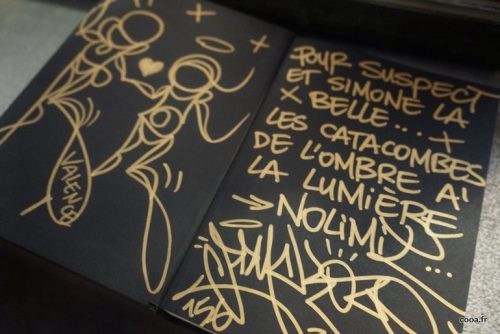 VALENCE
POUR SUSPECT
ET SIMONE LA
X BELLE... X
LES CATACOMBES
DE L'OMBRE A'
LA LUMIÈRE
→ NOLIMIT
cooa.fr